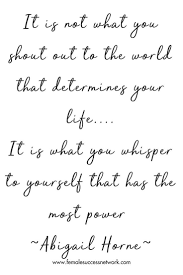 It is not what you
shout out to the world
that determines your
life....
It is what you whisper
to yourself that has the
most power
~Abigail Horne~
www.femalesuccessnetwork.com